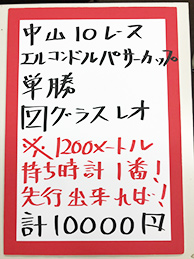 中山10レース
エルコンドルパサーカップ
単勝
7グラスレオ
※1200メートル
持ち時計1番!
先行出来れば!
計10000円